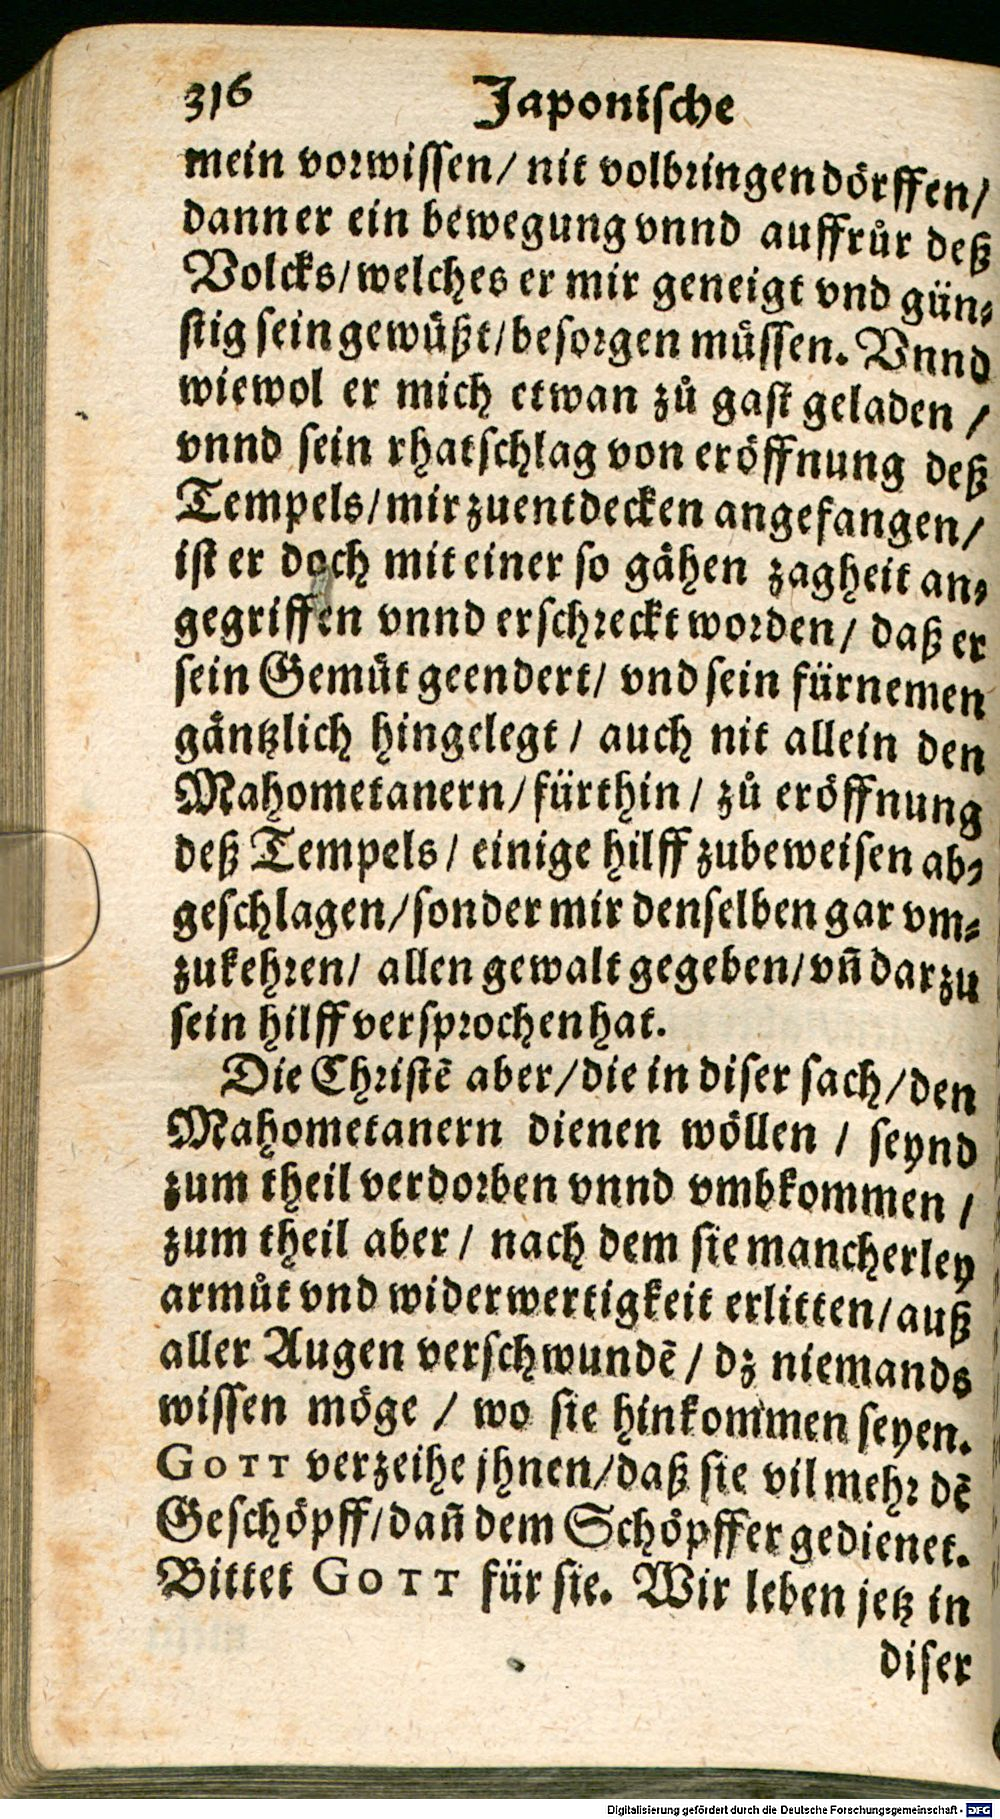 316 Japonische
mein vorwissen/ nit volbringen dörffen/
dann er ein bewegung vnnd auffrůr deß
Volcks/ welches er mir geneigt vnd gün⸗
stig sein gewüßt/ besorgen müssen. Vnnd
wiewol er mich etwan zů gast geladen /
vnnd sein rhatschlag von eröffnung deß
Tempels/ mir zuentdecken angefangen/
ist er doch mit einer so gähen zagheit an⸗
gegriffen vnnd erschreckt worden/ daß er
sein Gemüt geendert/ vnd sein fürnemen
gäntzlich hingelegt / auch nit allein den
Mahometanern/ fürthin / zů eröffnung
deß Tempels / einige hilff zubeweisen ab⸗
geschlagen/ sonder mir denselben gar vm⸗
zukehren/ allen gewalt gegeben/ vn̄ darzu
sein hilff versprochen hat.
Die Christē aber/ die in diser sach/ den
Mahometanern dienen wöllen / seynd
zum theil verdorben vnnd vmbkommen /
zum theil aber / nach dem sie mancherley
armůt vnd widerwertigkeit erlitten/ auß
aller Augen verschwundē / dz niemands
wissen möge / wo sie hinkommen seyen.
GOTT verzeihe jhnen/ daß sie vil mehr dē
Geschöpff/ dan̄ dem Schöpffer gedienet.
Bittet GOTT für sie. Wir leben jetz in
diser
Digitalisierung gefördert durch die Deutsche Forschungsgemeinschaft - DFG